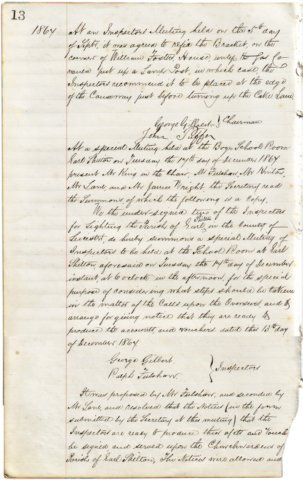 13
1864 At an Inspectors Meeting held on the 5th day
of Sept, it was agreed to refix the Bracket, on the
corner of William Foster House, unless the Gas Co
would put up a Lamp Post, in which case, the
Inspectors recommend it to be placed at the edge
of the Causeway just before turning up the Lane
George Gilbert } Chairman
John
At a special Meeting held at the Boys School Room
Earl Shilton on Tuesday the 17th day of December 1864
present Mr King in the Chair, Mr Fulshaw, Mr
Mr Lord, and Mr James Wright the Secretary read
the Summons of which the following is a Copy.
We the undersigned two of the Inspectors
for Lighting the Parish of Earl Shilton in the County of
Leicester, do hereby summons a special Meeting of
Inspectors to be held at the School Room at Earl
Shilton aforesaid on Tuesday the 17th day of December
instant at 6 o'clock in the afternoon for the special
purpose of considering what steps should be taken
in the matter of the Calls upon the Overseers and to
arrange for giving notice that they are ready to
produce the accounts and vouchers dated this 13th day
of December 1864
George Gilbert
Ralph Fulshaw } Inspectors
It was proposed by Mr Fulshaw, and seconded by
Mr Lord and resolved that the Notices (in the form
submitted by the Secretary at this meeting) that the
Inspectors are ready to produce their accts and Vouchers
be signed and served upon the Churchwardens of
Parish of Earl Shilton, The Notices were allowed and